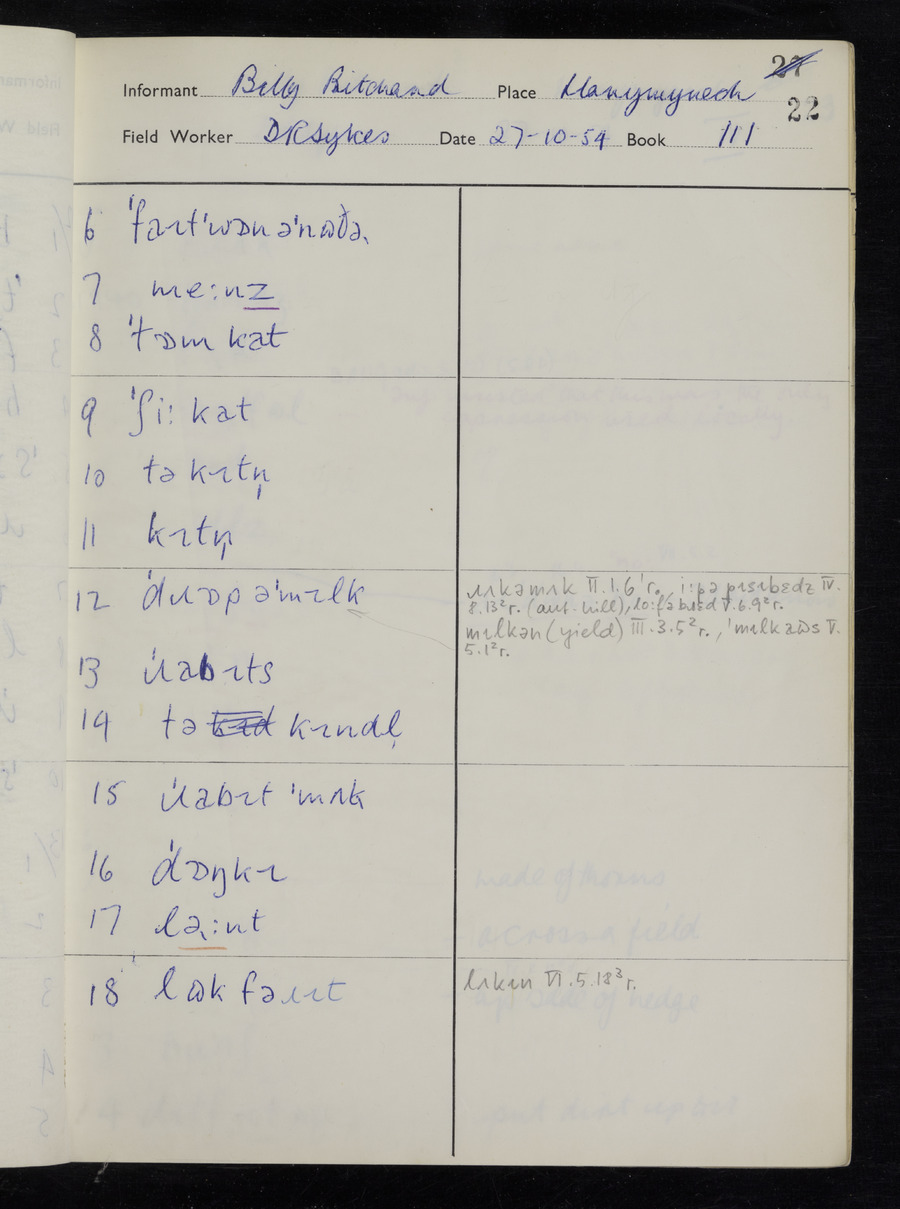 27
22
Informant Billy Pritchard Place Llanymynech
Field Worker D R Sykes Date 27-10-54 Book III
6 ˈfaɪtˈwɒn əˈnɷðə˞
7 me:nz
8 ˈtɒm kat
9 ˈʃi: kat
10 tə kɪtn̩
11 kɪtn̩
12 ˈdɹɒp əˈmɪlk
ɹɪkəmɪk II.1.6 r.
8.13² r. (ant-hill), V.6.9² r.
mɪlkən (yield) III.3.5² r., ˈmɪlk V.
5.1² r.
13 ˈɹabɪts
14 tə kɪndl̩
15 ˈɹabɪt
16 ˈdɒŋkɪ
17 lə˞:nt
18 lɷk fəɹɪt
lɪkɪn VI.5.18³ r.